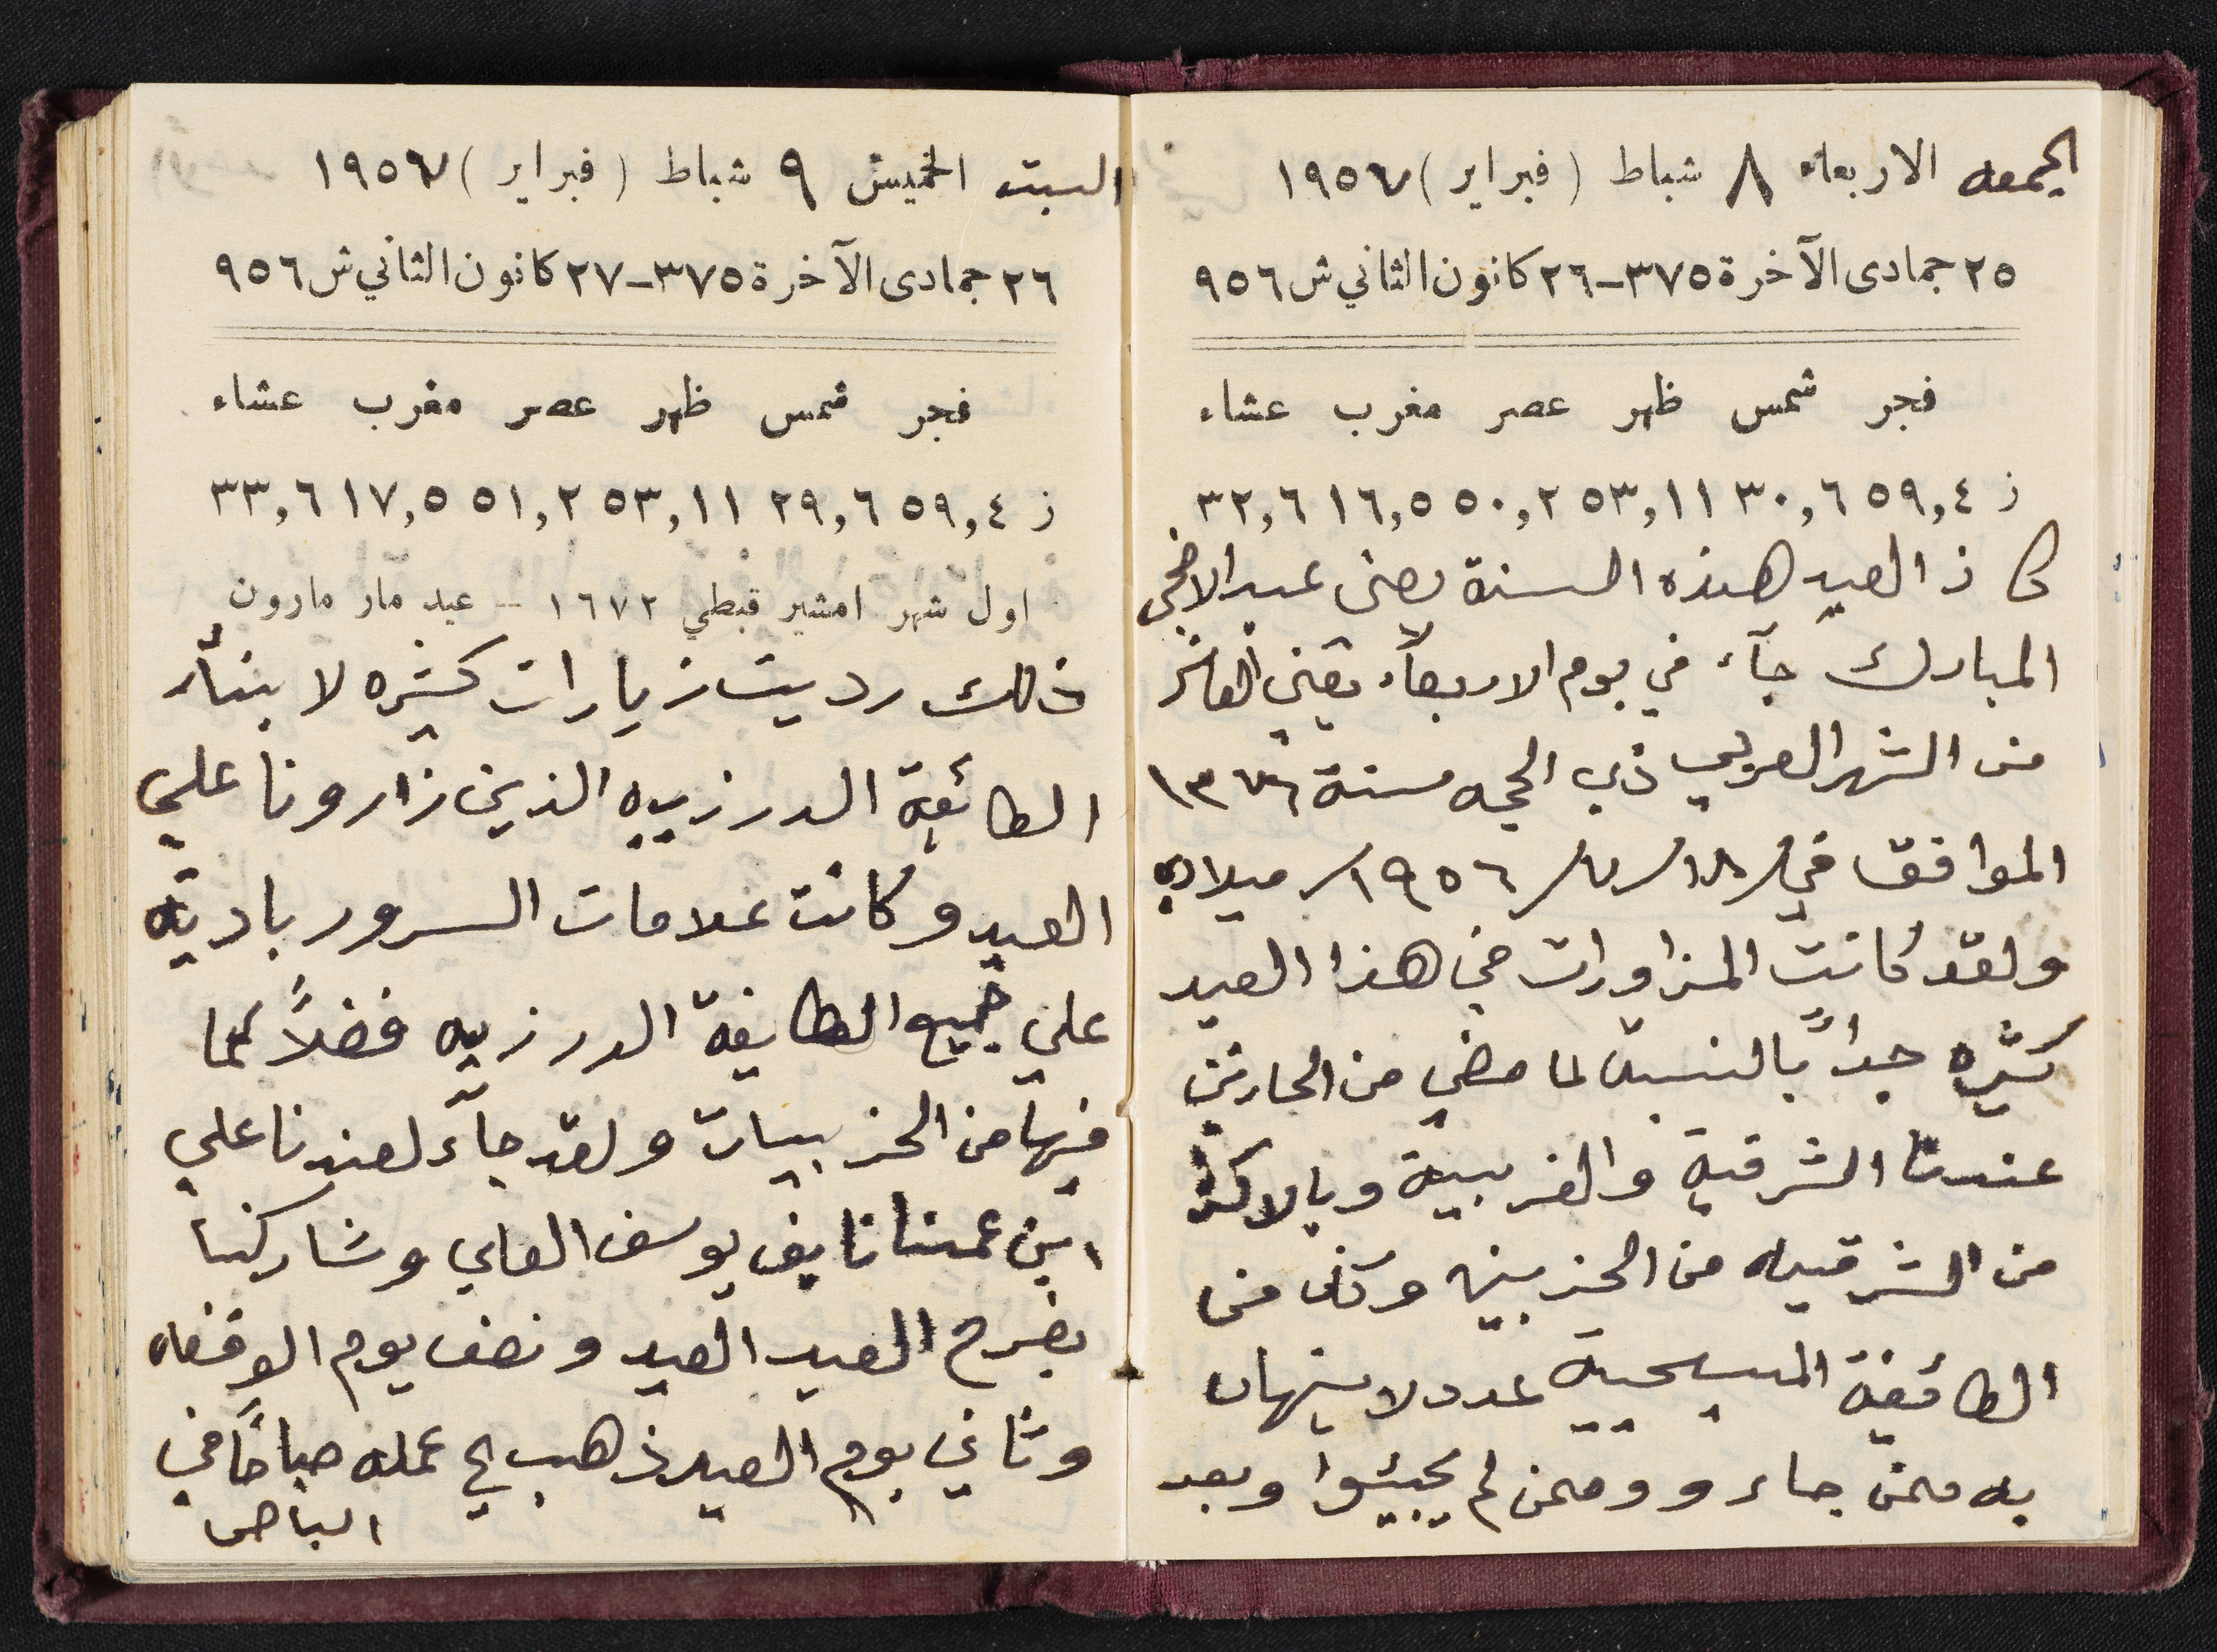 الجمعه الاربعاء ٨ شباط (فبراير) ١٩٥٧
٢٥ جمادى الآخرة ٣٧٥ـ٢٦ كانون الثاني ش ٩٥٦
فجر شمس ظهر عصر مغرب عشاء
ز ٥٩,٤ ٣٠,٦ ٥٣,١١ ٥٠,٢ ١٦,٥ ٣٢,٦
العيد هذه السنة يعني عيد الاضحى
المبارك جآء في يوم الاربعآء يعني العاشر
من الشهر العربي ذي الحجه سنة ١٣٧٦
الموافق في ١٨/٧/١٩٥٦ ميلادي
ولقد كانت المزاورات في هذا العيد
كثيره جداً بالنسبة لما مضى من الحارتين
عندنا الشرقية والغربية وبالاكثر
من الشرقيه من الحزبين وكان من
الطائفة المسيحية عدد لا يستهان
به ممن جاءوا وممن لم يجيئوا وبعد
السبت الخميس ٩ شباط (فبراير) ١٩٥٧
٢٦ جمادى الآخرة ٣٧٥ـ٢٧ كانون الثاني ش ٩٥٦
فجر شمس ظهر عصر مغرب عشاء
ز ٥٩,٤ ٢٩,٦ ٥٣,١١ ٥١,٢ ١٧,٥ ٣٣,٦
اول شهر امشير قبطي ١٦٧٢ – عيد مار مارون
ذلك رديت زيارات كثيره لابنآء
الطائفة الدرزييه الذين زارونا على
العيد وكانت علامات السرور باديه
على جميع الطايفة الدرزيه فضلاً عما
فيها من الحزبيات ولقد جآء لعندنا على
ابن عمنا نايف يوسف العلي وشاركنا
بفرح العيد العيد ونصف يوم الوقفه
وثاني يوم العيد ذهب الى عمله صباحاً في
الباص